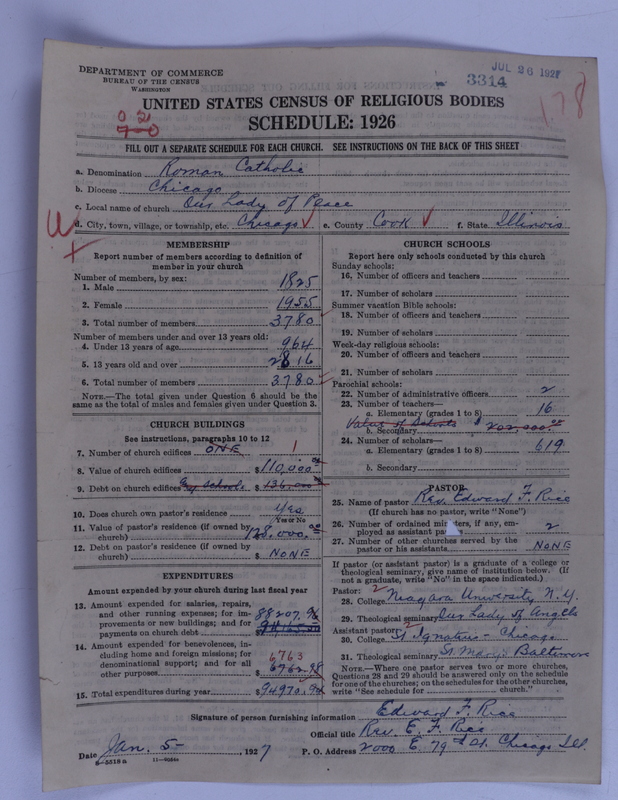 DEPARTMENT OF COMMERCE
BUREAU OF THE CENSUS
WASHINGTON
JUL 26 1927
3314
178
UNITED STATES CENSUS OF RELIGIOUS BODIES
SCHEDULE: 1926
FILL OUT A SEPARATE SCHEDULE FOR EACH CHURCH. SEE INSTRUCTIONS ON THE BACK OF THIS SHEET
a. Denomination Roman Catholic
b. Diocese Chicago
c. Local name of church Our Lady of Peace
d. City, town, village, or township, etc. Chicago e. County Cook f. State Illinois
MEMBERSHIP
Report number of members according to definition of
member in your church
Number of members, by sex:
1. Male 1825
2. Female 1955
3. Total number of members 3780
Number of members under and over 13 years old:
4. Under 13 years of age 964
5. 13 years old and over 2816
6. Total number of members 3780
NOTE.—The total given under Question 6 should be the
same as the total of males and females given under Question 3.
CHURCH BUILDINGS
See instructions, paragraphs 10 to 12
7. Number of church edifices ONE 1
8. Value of church edifices $110,000.00
9. Debt on church edifices $
10. Does church own pastor's residence? Yes
Yes or No
11. Value of pastor's residence (if owned by
church) 128,000.00
12. Debt on pastor's residence (if owned by
church) $ NONE
EXPENDITURES
Amount expended by your church during last fiscal year
13. Amount expended for salaries, repairs,
and other running expenses; for im-
provements or new buildings; and for
payments on church debt 88207.96
14. Amount expended for benevolences, in-
cluding home and foreign missions; for
denominational support; and for all
other purposes $ 6762.98
6763
15. Total expenditures during year $94970.94
CHURCH SCHOOLS
Report here only schools conducted by this church
Sunday schools:
16. Number of officers and teachers
17. Number of scholars
Summer vacation Bible schools:
18. Number of officers and teachers
19. Number of scholars
Week-day religious schools:
20. Number of officers and teachers
21. Number of scholars
Parochial schools:
22. Number of administrative officers 2
23. Number of teachers—
a. Elementary (grades 1 to 8) 16
Value of Schools $ 202,000.00
b. Secondary
24. Number of scholars—
a. Elementary (grades 1 to 8) 619
b. Secondary
PASTOR
25. Name of pastor Rev. Edward F. Rice
(If church has no pastor, write "None")
26. Number of ordained ministers, if any, em-
ployed as assistant 2
27. Number of other churches served by the
pastor or his assistants NONE
If pastor (or assistant pastor) is a graduate of a college or
theological seminary, give name of institution below. (If
not a graduate, write "No" in the space indicated.)
Pastor:
28. College Niagara University N.Y.
29. Theological seminary Our Lady of Angels
Assistant pastor:
30. College St Ignatius - Chicago
31. Theological seminary St. Mary's Baltimore
NOTE.—Where one pastor serves two or more churches,
Questions 28 and 29 should be answered only on the schedule
for one of the churches; on the schedules for the other churches,
write "See schedule for church."
Signature of person furnishing information Edward F. Rice
Official title Rev. E. F. Rice
Date Jan. 5- , 1927 P. O. Address 2000 E. 79th St. Chicago Ill.
8-5518a 11-9064a